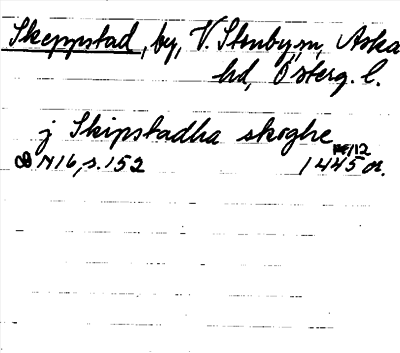 Skeppstad, by, V. Stenby sn, Aska
hd, Österg. l.
j Skipstadha skoghe
N16, s. 152 1445 or.